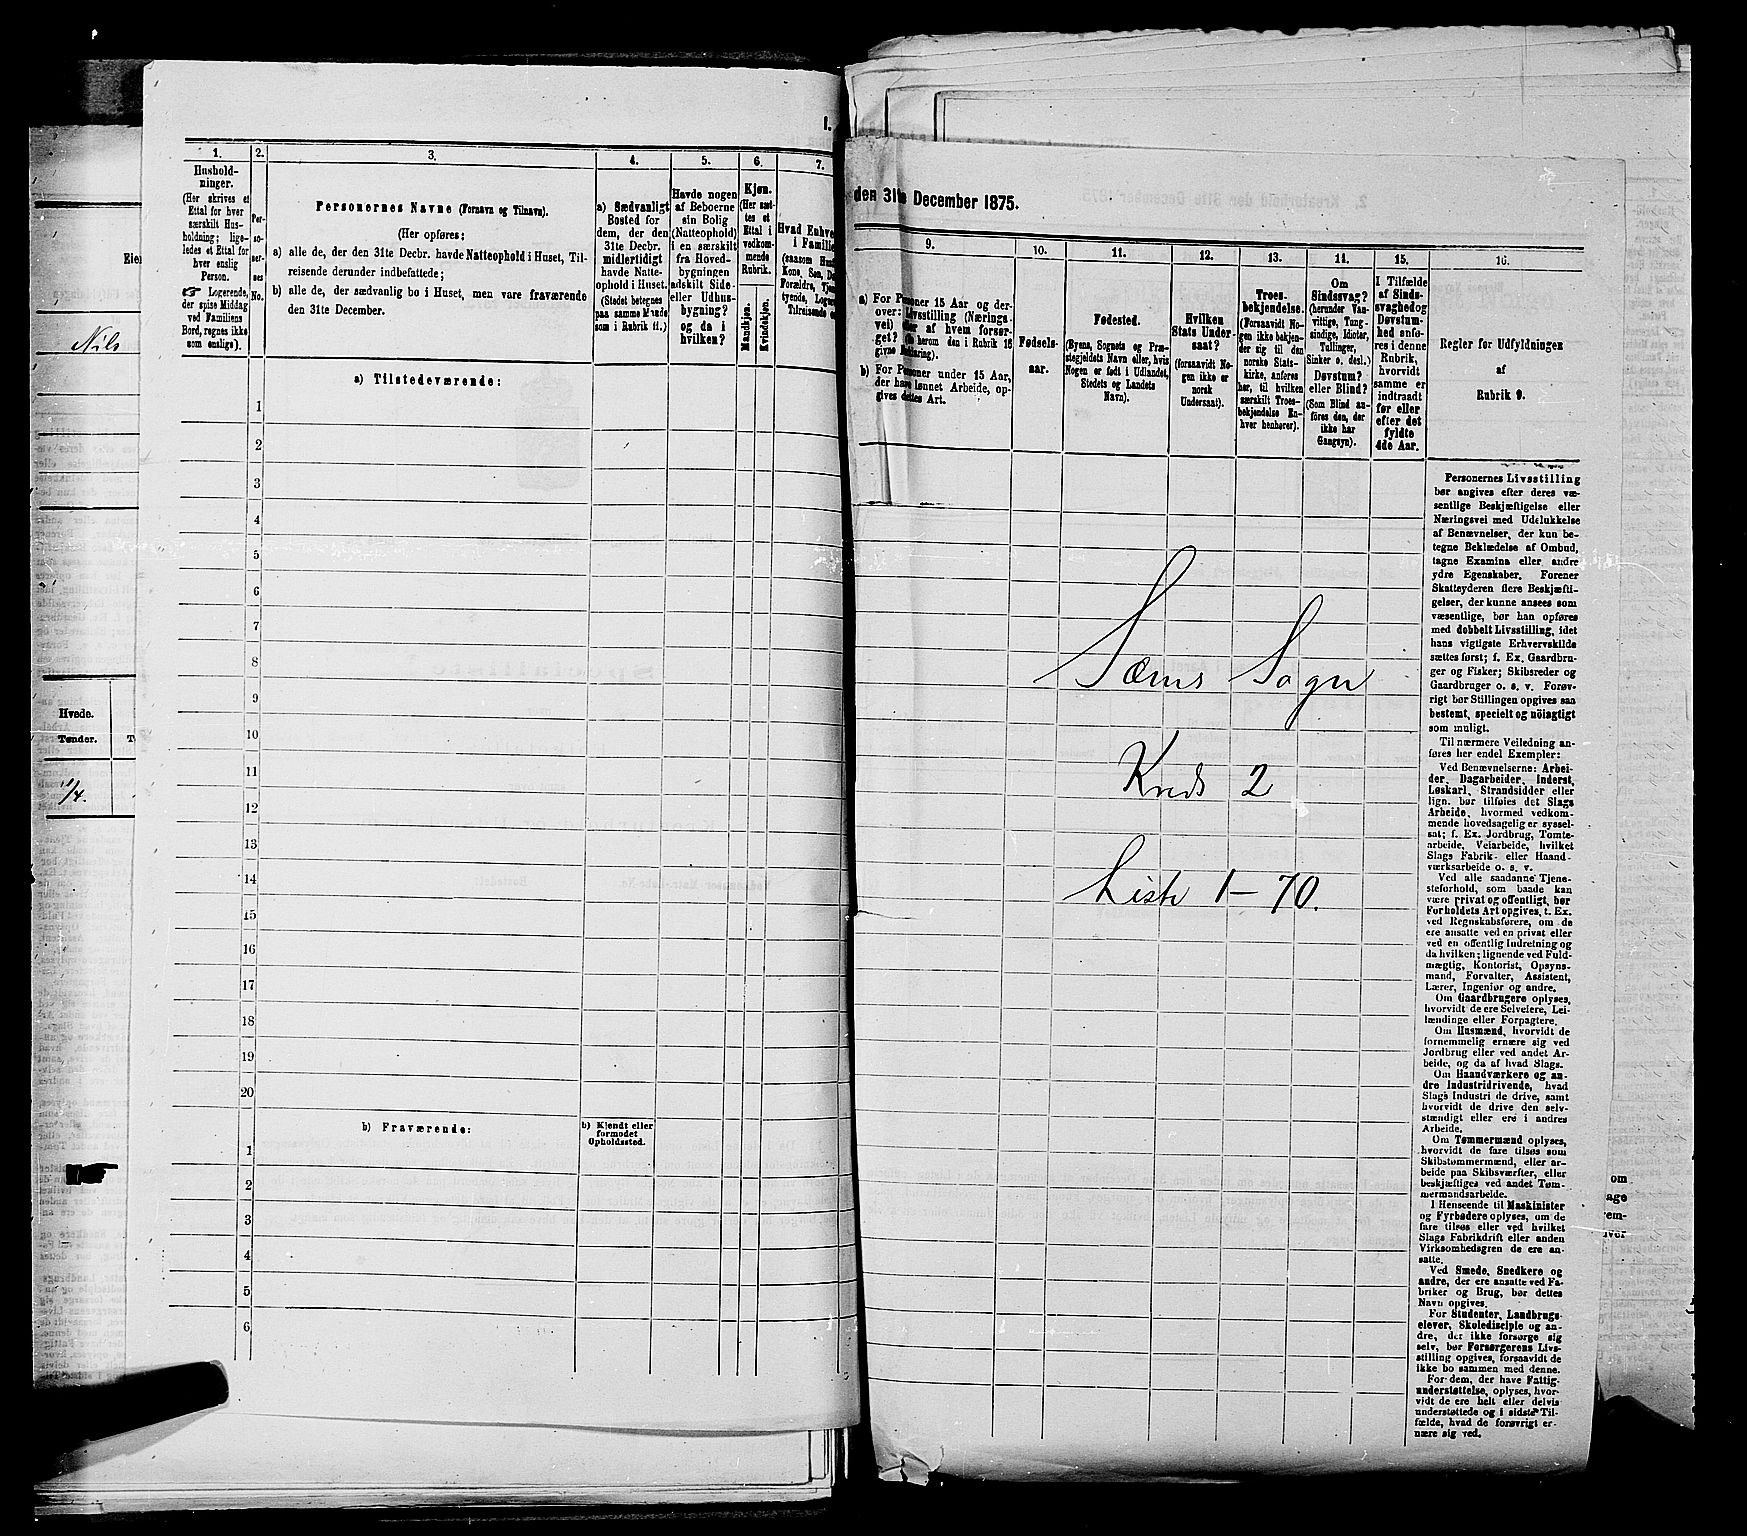 Nils
Hvede.
Tønder.
1/4.
I.
1.
Hushold-
ninger.
(Her skrives et
Ettal for hver
særskilt Hus-
holdning; lige-
ledes et Ettal for
hver enslig
Person.
☞ Logerende,
der spise Middag
ved Familiens
Bord, regnes ikke
som enslige).
2.
Per-
so-
ner-
nes
No.
3.
Personernes Navne (Fornavn og Tilnavn).
(Her opføres;
a) alle de, der den 31te Decbr. havde Natteophold i Huset, Til-
reisende derunder indbefattede;
b) alle de, der sædvanlig bo i Huset, men vare fraværende
den 31te December.
4.
a) Sædvanligt
Bosted for
dem, der den
31te Decbr.
midlertidigt
havde Natte-
ophold i Huset.
(Stedet betegnes
paa samme Maade
som i Rubrik 11.)
5.
Havde nogen
af Beboerne
sin Bolig
(Natteophold)
i en særskilt
fra Hoved-
bygningen
adskilt Side-
eller Udhus-
bygning?
og da i
hvilken?
6.
Kjøn.
(Her sæt-
tes et
Ettal i
vedkom-
mende
Rubrik.
Mandkjøn.
Kvindekjøn.
7.
Hvad Enhve
i Familie
(saasom Husf
Kone, Søn, Da
Forældre, Tje
tyende, Loger
Tilreisende o
a) Tilstedeværende:
1
2
3
4
5
6
7
8
9
10
11
12
13
14
15
16
17
18
19
20
b) Fraværende:
b) Kjendt eller
formodet
Opholdssted.
1
2
3
4
5
6
den 31te December 1875.
9.
10.
Fødsels-
aar.
11.
Fødested.
(Byens, Sognets og Præ-
stegjeldets Navn eller, hvis
Nogen er født i Udlandet,
Stedets og Landets
Navn).
12.
Hvilken
Stats Under-
saat?
(forsaavidt No-
gen ikke er
norsk
Undersaat).
13.
Troes-
bekjendelse.
(Forsaavidt No-
gen ikke bekjen-
der sig til den
norske Stats-
kirke, anføres
her, til hvilken
særskilt Troes-
bekjendelse En-
hver henhører).
14.
Om
Sindssvag?
(herunder Van-
vittige, Tung-
sindige, Idioter,
Tullinger,
Sinker o. desl.)
Døvstum?
eller Blind?
(Som Blind an-
føres den, der
ikke har
Gangsyn).
15.
I Tilfælde
af Sinds-
svaghed og
Døvstum-
hed anfø-
res i denne
Rubrik,
hvorvidt
samme er
indtraadt
før eller
efter det
fyldte
4de Aar.
16.
Regler for Udfyldningen
af
Rubrik 9.
Sæms Sogn
Kreds 2
Liste 1-70.
Personernes Livsstilling
bør angives efter deres væ-
sentlige Beskjæftigelse eller
Næringsvei med Udelukkelse
af Benævnelser, der kun be-
tegne Beklædelse af Ombud,
tagne Examina eller andre
ydre Egenskaber. Forener
Skatteyderen flere Beskjæfti-
gelser, der kunne ansees som
væsentlige, bør han opføres
med dobbelt Livsstilling, idet
hans vigtigste Erhvervskilde
sættes først; f. Ex. Gaardbru-
ger og Fisker; Skibsreder og
Gaardbruger o. s. v. Forøv-
rigt bør Stillingen opgives saa
bestemt, specielt og nöiagtigt
som muligt.
Til nærmere Veiledning an-
føres her endel Exempler:
Ved Benævnelserne: Arbei-
der, Dagarbeider, Inderst,
Løskarl, Strandsidder eller
lign. bør tilføies det Slags
Arbeide, hvormed vedkom-
mende hovedsagelig er syssel-
sat; f. Ex. Jordbrug, Tomte-
arbeide, Veiarbeide, hvilket
Slags Fabrik- eller Haand-
værksarbeide o. s. v.
Ved alle saadanne Tjene-
steforhold, som baade kan
være privat og offentligt, bør
Forholdets Art opgives, t. Ex.
ved Regnskabsførere, om de
ere ansatte ved en privat eller
ved en offentlig Indretning og
da hvilken; lignende ved Fuld-
mægtig, Kontorist, Opsyns-
mand, Forvalter, Assistent,
Lærer, Ingeniør og andre.
Om Gaardbrugere oplyses,
hvorvidt de ere Selveiere, Lei-
lændinge eller Forpagtere.
Om Husmænd, hvorvidt de
fornemmelig ernære sig ved
Jordbrug eller ved andet Ar-
beide, og da af hvad Slags.
Om Haandværkere og an-
dre Industridrivende, hvad
Slags Industri de drive, samt
hvorvidt de drive den selv-
stændigt eller ere i andres
Arbeide.
Om Tømmermænd oplyses,
hvorvidt de fare tilsøs som
Skibstømmermænd, eller ar-
beide paa Skibsværfter, eller
beskjæftiges ved andet Tøm-
mermandsarbeide.
I Henseende til Maskinister
og Fyrbødere oplyses, om de
fare tilsøs eller ved hvilket
Slags Fabrikdrift eller anden
Virksomhedsgren de ere an-
satte.
Ved Smede, Snedkere og
andre, der ere ansatte ved Fa-
briker og Brug, bør dettes
Navn opgives.
For Studenter, Landbrugs-
elever, Skoledisciple og an-
dre, der ikke forsørge sig
selv, bør Forsørgerens Livs-
stilling opgives, forsaavidt de
ikke bo sammen med denne.
For dem, der have Fattig-
understøttelse, oplyses, hvor-
vidt de ere helt eller delvis
understøttede og i sidste Til-
fælde, hvad de forøvrigt er-
nære sig ved.